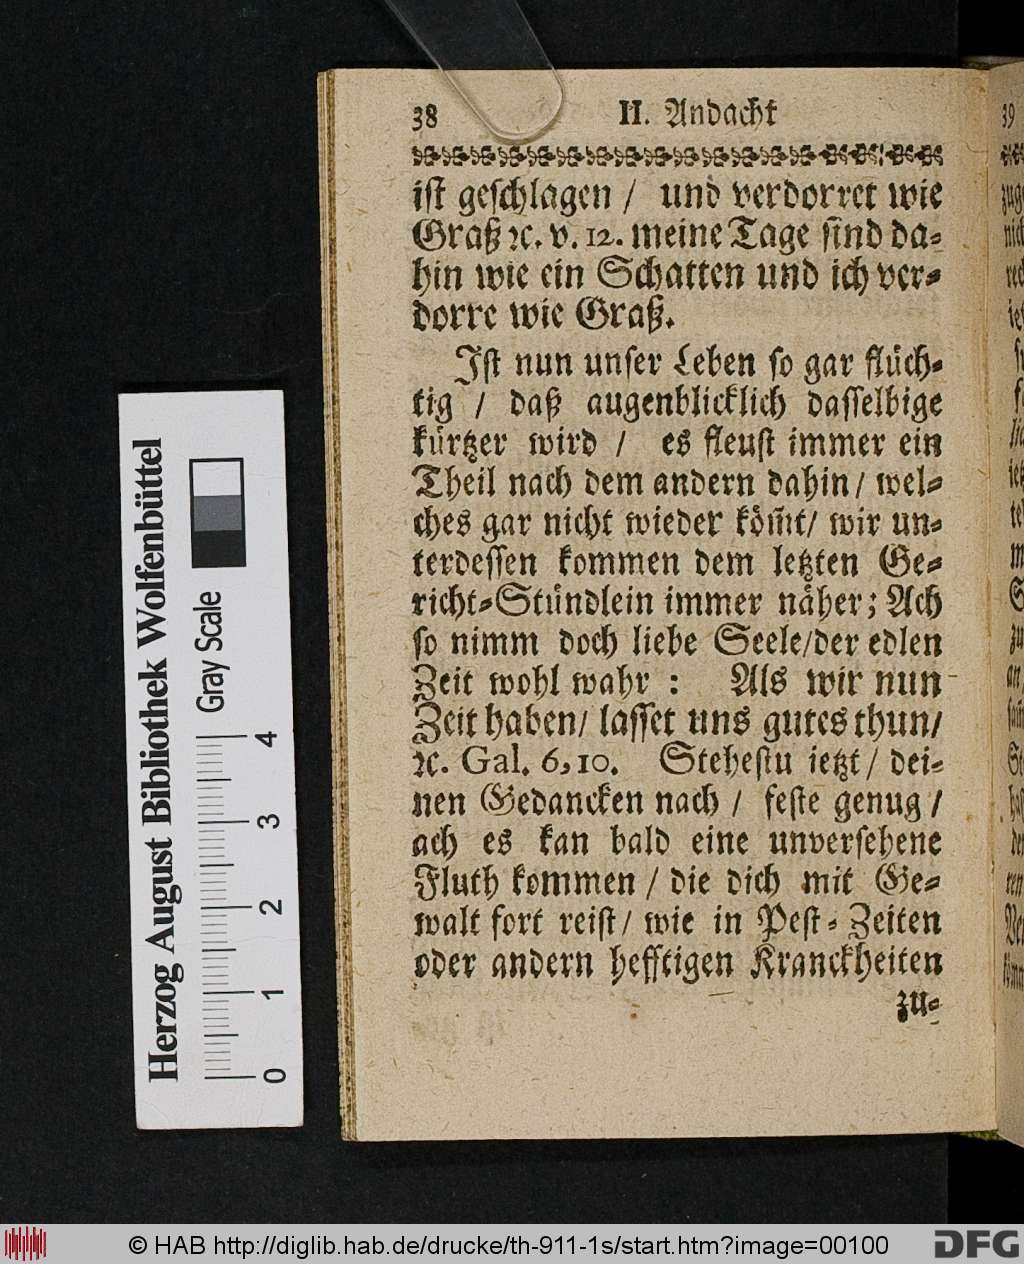 38 II. Andacht
iſt geſchlagen / und verdorret wie
Graß ꝛc. v. 12. meine Tage ſind da-
hin wie ein Schatten und ich ver-
dorre wie Graß.
Iſt nun unſer Leben ſo gar flüch-
tig / daß augenblicklich daſſelbige
kürtzer wird / es fleuſt immer ein
Theil nach dem andern dahin / wel-
ches gar nicht wieder köm̃t / wir un-
terdeſſen kommen dem letzten Ge-
richt-Stündlein immer näher; Ach
ſo nimm doch liebe Seele / der edlen
Zeit wohl wahr : Als wir nun
Zeit haben / laſſet uns gutes thun /
ꝛc. Gal. 6, 10. Steheſtu ietzt / dei-
nen Gedancken nach / feſte genug /
ach es kan bald eine unverſehene
Fluth kommen / die dich mit Ge-
walt fort reiſt / wie in Peſt-Zeiten
oder andern hefftigen Kranckheiten
zu-
39
Herzog August Bibliothek Wolfenbüttel
Gray Scale
0 1 2 3 4
© HAB http://diglib.hab.de/drucke/th-911-1s/start.htm?image=00100
DFG